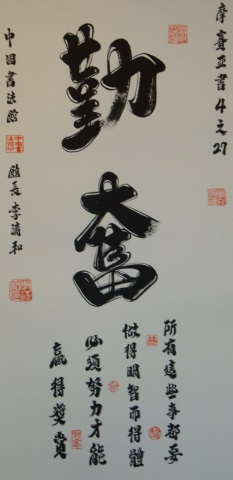 摩賽亞書4之27
勤奮
所有這些事都要
做得明智而得體
必須努力才能
贏得獎賞
中国書法館 館長李清和